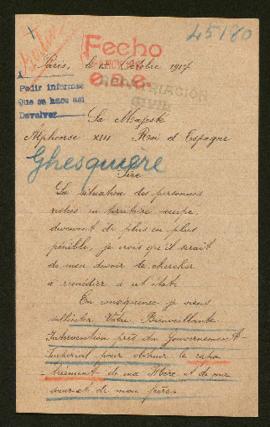 45180
Paris, le Octobre 1917
Fecho
Pedir informes
Que se haga así
Devolver
Sa Majesté
Alphonse XIII Roi d'Espagne
Ghesquiere
Sire
La situation des personnes
restées en territoire occupé
devenant de plus en plus
pénible, je crois qu'il serait
de mon devoir de chercher
à remédier à cet état.
En conséquence je viens
solliciter Votre Bienveillante
Intervention près du Gouvernement
Impérial pour obtenir le rapa-
triement de ma Mère et de ma
de mon frère.